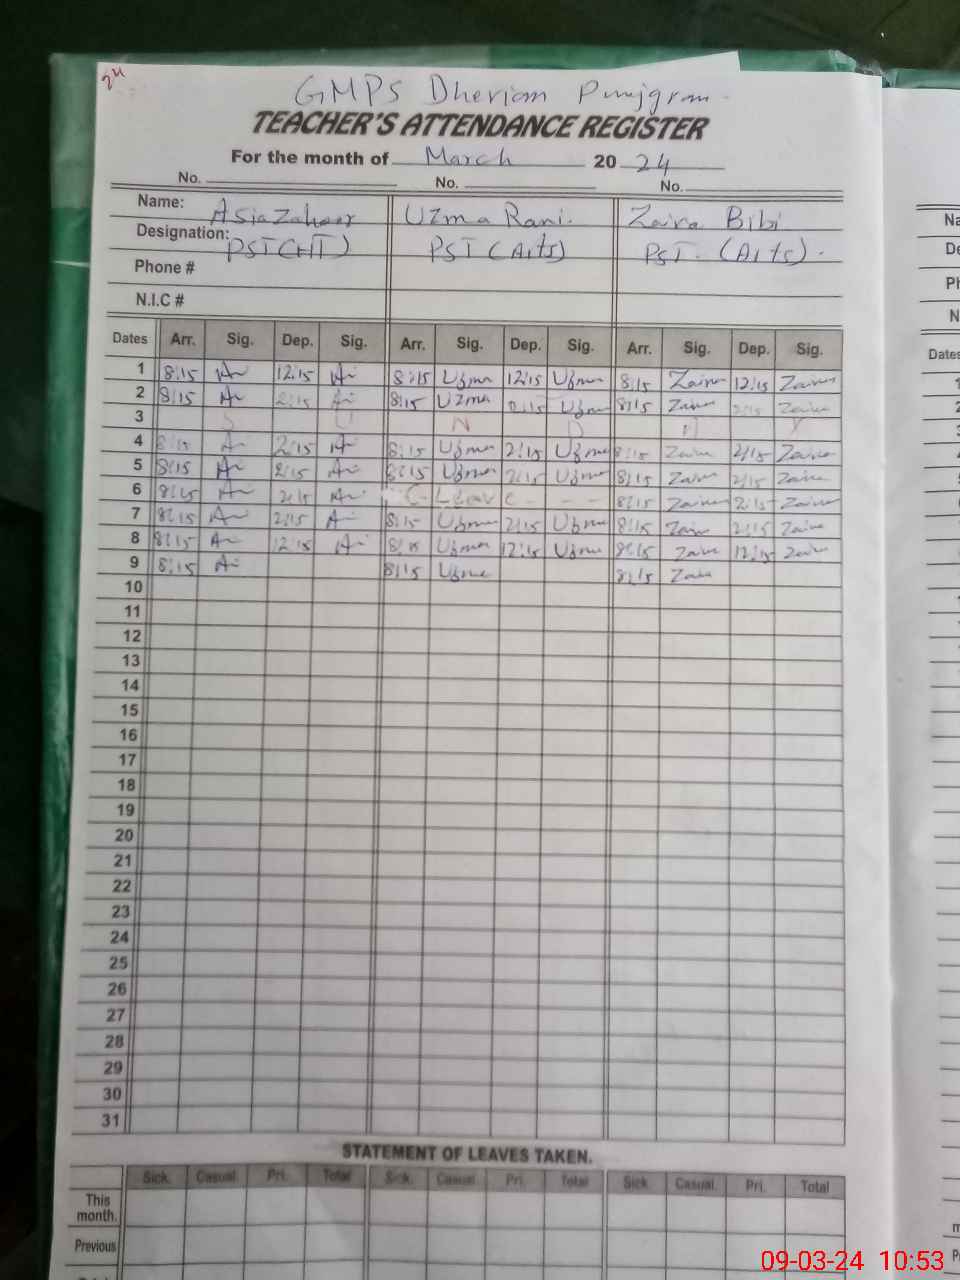 24
GMPS Dheriam Punjgran.
TEACHER'S ATTENDANCE REGISTER
For the month of March 20 24
No. No. No.
Name: Asia Zaheer Uzma Rani. Zaira Bibi
Designation: PST(HT) PST (Arts) PST. (Arts).
Phone #
N.I.C #
Dates Arr. Sig. Dep. Sig. Arr. Sig. Dep. Sig. Arr. Sig. Dep. Sig.
1 8:15 12:15 8:15 Uzma 12:15 Uzma 8:15 Zaira 12:15 Zaira
2 8:15 2:15 8:15 Uzma 2:15 Uzma 8:15 Zaira 2:15 Zaira
3 S U N D A Y
4 8:15 2:15 8:15 Uzma 2:15 Uzma 8:15 Zaira 2:15 Zaira
5 8:15 2:15 8:15 Uzma 2:15 Uzma 8:15 Zaira 2:15 Zaira
6 8:15 2:15 C-Leave - - - 8:15 Zaira 2:15 Zaira
7 8:15 2:15 8:15 Uzma 2:15 Uzma 8:15 Zaira 2:15 Zaira
8 8:15 12:15 8:15 Uzma 12:15 Uzma 8:15 Zaira 12:15 Zaira
9 8:15 8:15 Uzma 8:15 Zaira
10
11
12
13
14
15
16
17
18
19
20
21
22
23
24
25
26
27
28
29
30
31
STATEMENT OF LEAVES TAKEN.
Sick. Casual. Pri. Total Sick. Casual. Pri. Total Sick. Casual. Pri. Total
This month.
Previous
09-03-24 10:53